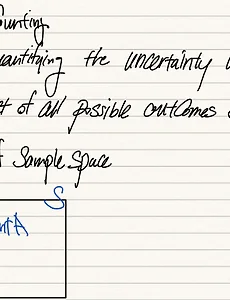 ounting
uantifying the uncertainty
t of all possible outcomes
f Sample Space
S
nt A